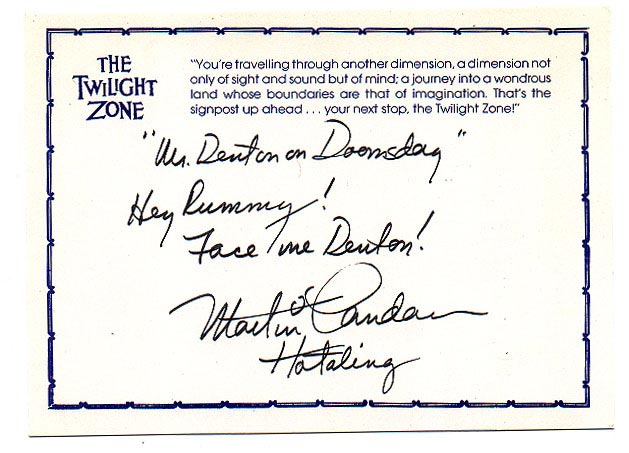 THE
TWILIGHT
ZONE
"You're travelling through another dimension, a dimension not
only of sight and sound but of mind; a journey into a wondrous
land whose boundaries are that of imagination. That's the
signpost up ahead . . . your next stop, the Twilight Zone!"
"Mr. Denton on Doomsday"
Hey Rummy!
Face me Denton!
Martin Landau
Hotaling